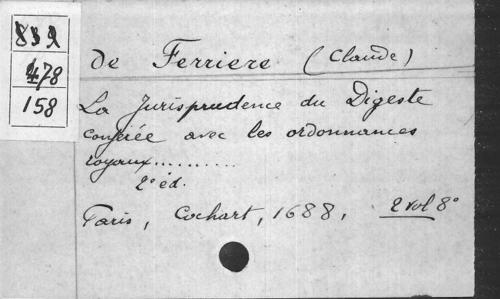 832
478
158
de Ferriere (Claude)
La Jurisprudence du Digeste
conferée avec les ordonnances
royaux..........
2e éd.
Paris, Cochart, 1688, 2 vol 8°